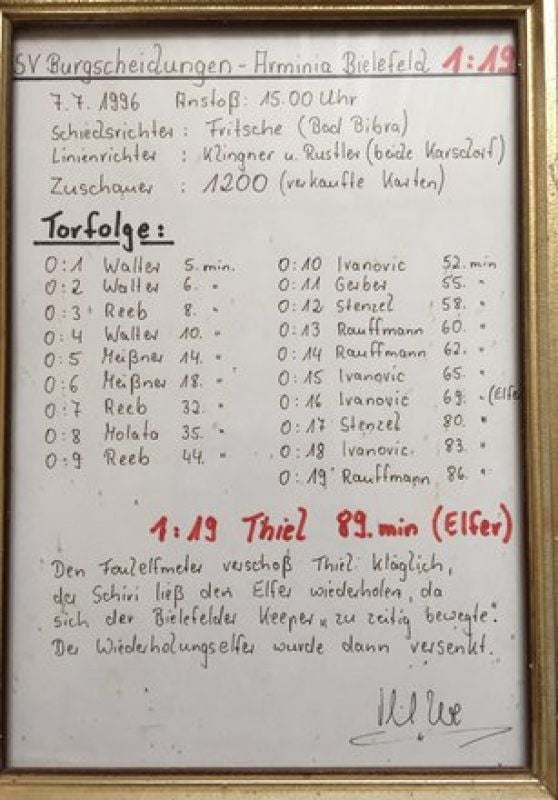 SV Burgscheidungen - Arminia Bielefeld 1:19
7.7.1996 Anstoß: 15.00 Uhr
Schiedsrichter: Fritsche (Bad Bibra)
Linienrichter : Klingner u. Rustler (beide Karsdorf)
Zuschauer : 1200 (verkaufte Karten)
Torfolge:
0:1 Walter 5. min.
0:2 Walter 6. "
0:3 Reeb 8. "
0:4 Walter 10. "
0:5 Meißner 14. "
0:6 Meißner 18. "
0:7 Reeb 32. "
0:8 Molata 35. "
0:9 Reeb 44. "
0:10 Ivanovic 52. min
0:11 Gerber 55. "
0:12 Stenzel 58. "
0:13 Rauffmann 60. "
0:14 Rauffmann 62. "
0:15 Ivanovic 65. "
0:16 Ivanovic 69. " (Elfer
0:17 Stenzel 80. "
0:18 Ivanovic. 83. "
0:19 Rauffmann 86. "
1:19 Thiel 89. min (Elfer)
Den Foulelfmeter verschoß Thiel kläglich,
der Schiri ließ den Elfer wiederholen, da
sich der Bielefelder Keeper „zu zeitig bewegte".
Der Wiederholungselfer wurde dann versenkt.